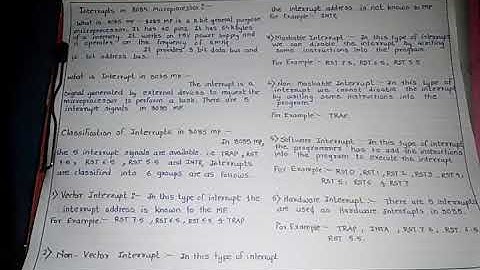 Interrupts in 8085 microprocessor :-
what is 8085 MP - 8085 MP is a 8 bit general purpose
microprocessor. It has 40 pins. It has 64 kbytes
of memory. It works on +5V power supply and
operates on the frequency of
It provides 8 bit data bus and
16 bit address bus.
what is Interrupt in 8085 MP :-
The interrupt is a
signal generated by external devices to request the
microprocessor to perform a task. There are 5
interrupt signals in 8085 MP.
Classification of Interrupts in 8085 :-
In 8085 MP,
the 5 interrupt signals are available i.e TRAP, RST
7.5, RST 6.5, RST 5.5 and INTR, Interrupts
are classified into 6 groups are as follows.
1) Vector Interrupt :- In this type of interrupt the
interrupt address is known to the MP.
For Example :- RST 7.5, RST 6.5, RST 5.5 & TRAP
2) Non-Vector Interrupt :- In this type of interrupt
the interrupt address is not known to MP
For Example :- INTR.
3) Maskable Interrupt :- In this type of interrupt
we can disable the interrupt by writing
some instructions into the program.
For Example :- RST 7.5, RST 6.5, RST 5.5
4) Non Maskable Interrupt :- In this type of
interrupt we cannot disable the interrupt
by writing some instructions into the
program.
For Example :- TRAP.
5) Software Interrupt :- In this type of interrupt
the programmer has to add the instructions
into the program to execute the interrupt.
For Example :- RST 0, RST 1, RST 2, RST 3, RST 4,
RST 5, RST 6 & RST 7
6) Hardware Interrupt :- There are 5 interrupts
are used as Hardware Interrupts in 8085.
For Example :- TRAP, INTR, RST 7.5, RST 6.5
RST 5.5.